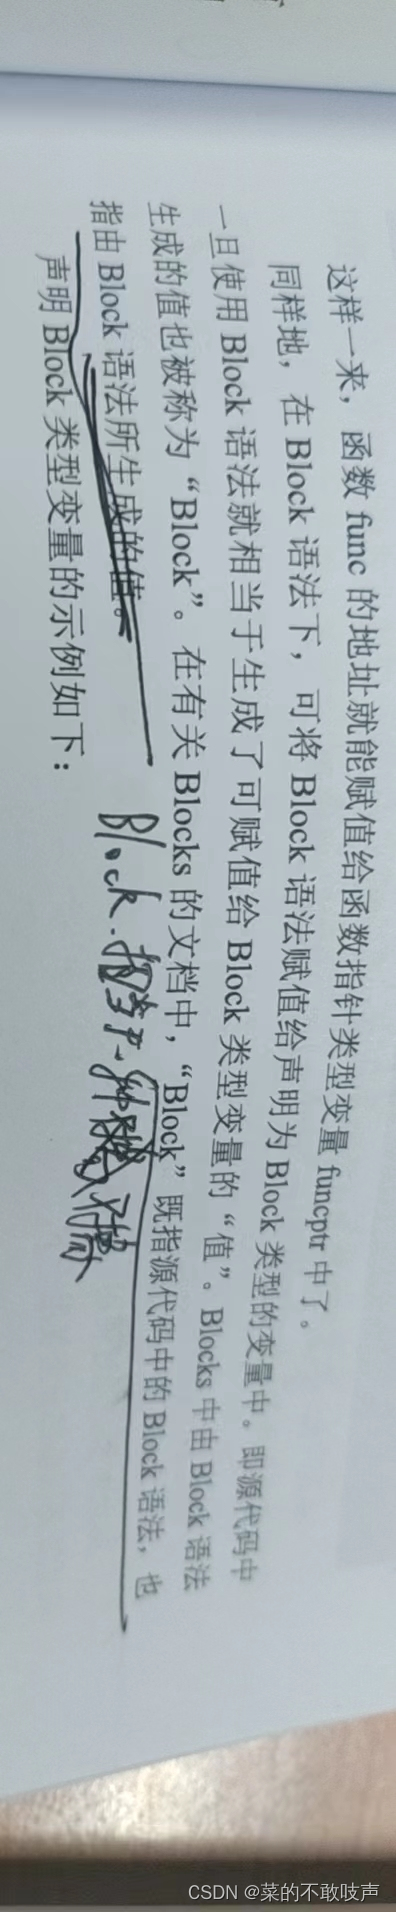 这样一来，函数 func 的地址就能赋值给函数指针类型变量 funcptr 中了。
同样地，在 Block 语法下，可将 Block 语法赋值给声明为 Block 类型的变量中。即源代码中
一旦使用 Block 语法就相当于生成了可赋值给 Block 类型变量的“值”。Blocks 中由 Block 语法
生成的值也被称为“Block”。在有关 Blocks 的文档中，“Block”既指源代码中的 Block 语法，也
指由 Block 语法所生成的值。
Block 相当于一种
声明 Block 类型变量的示例如下：
CSDN @菜的不敢吱声